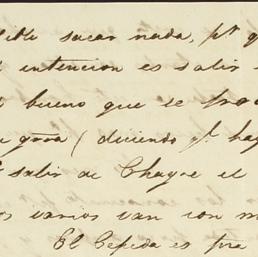 sacar nada, pr q
intencion es salir
bueno que se pro
diciendo qe hay
salir de Chagre el
os varios van con m
El Cepeda es pra